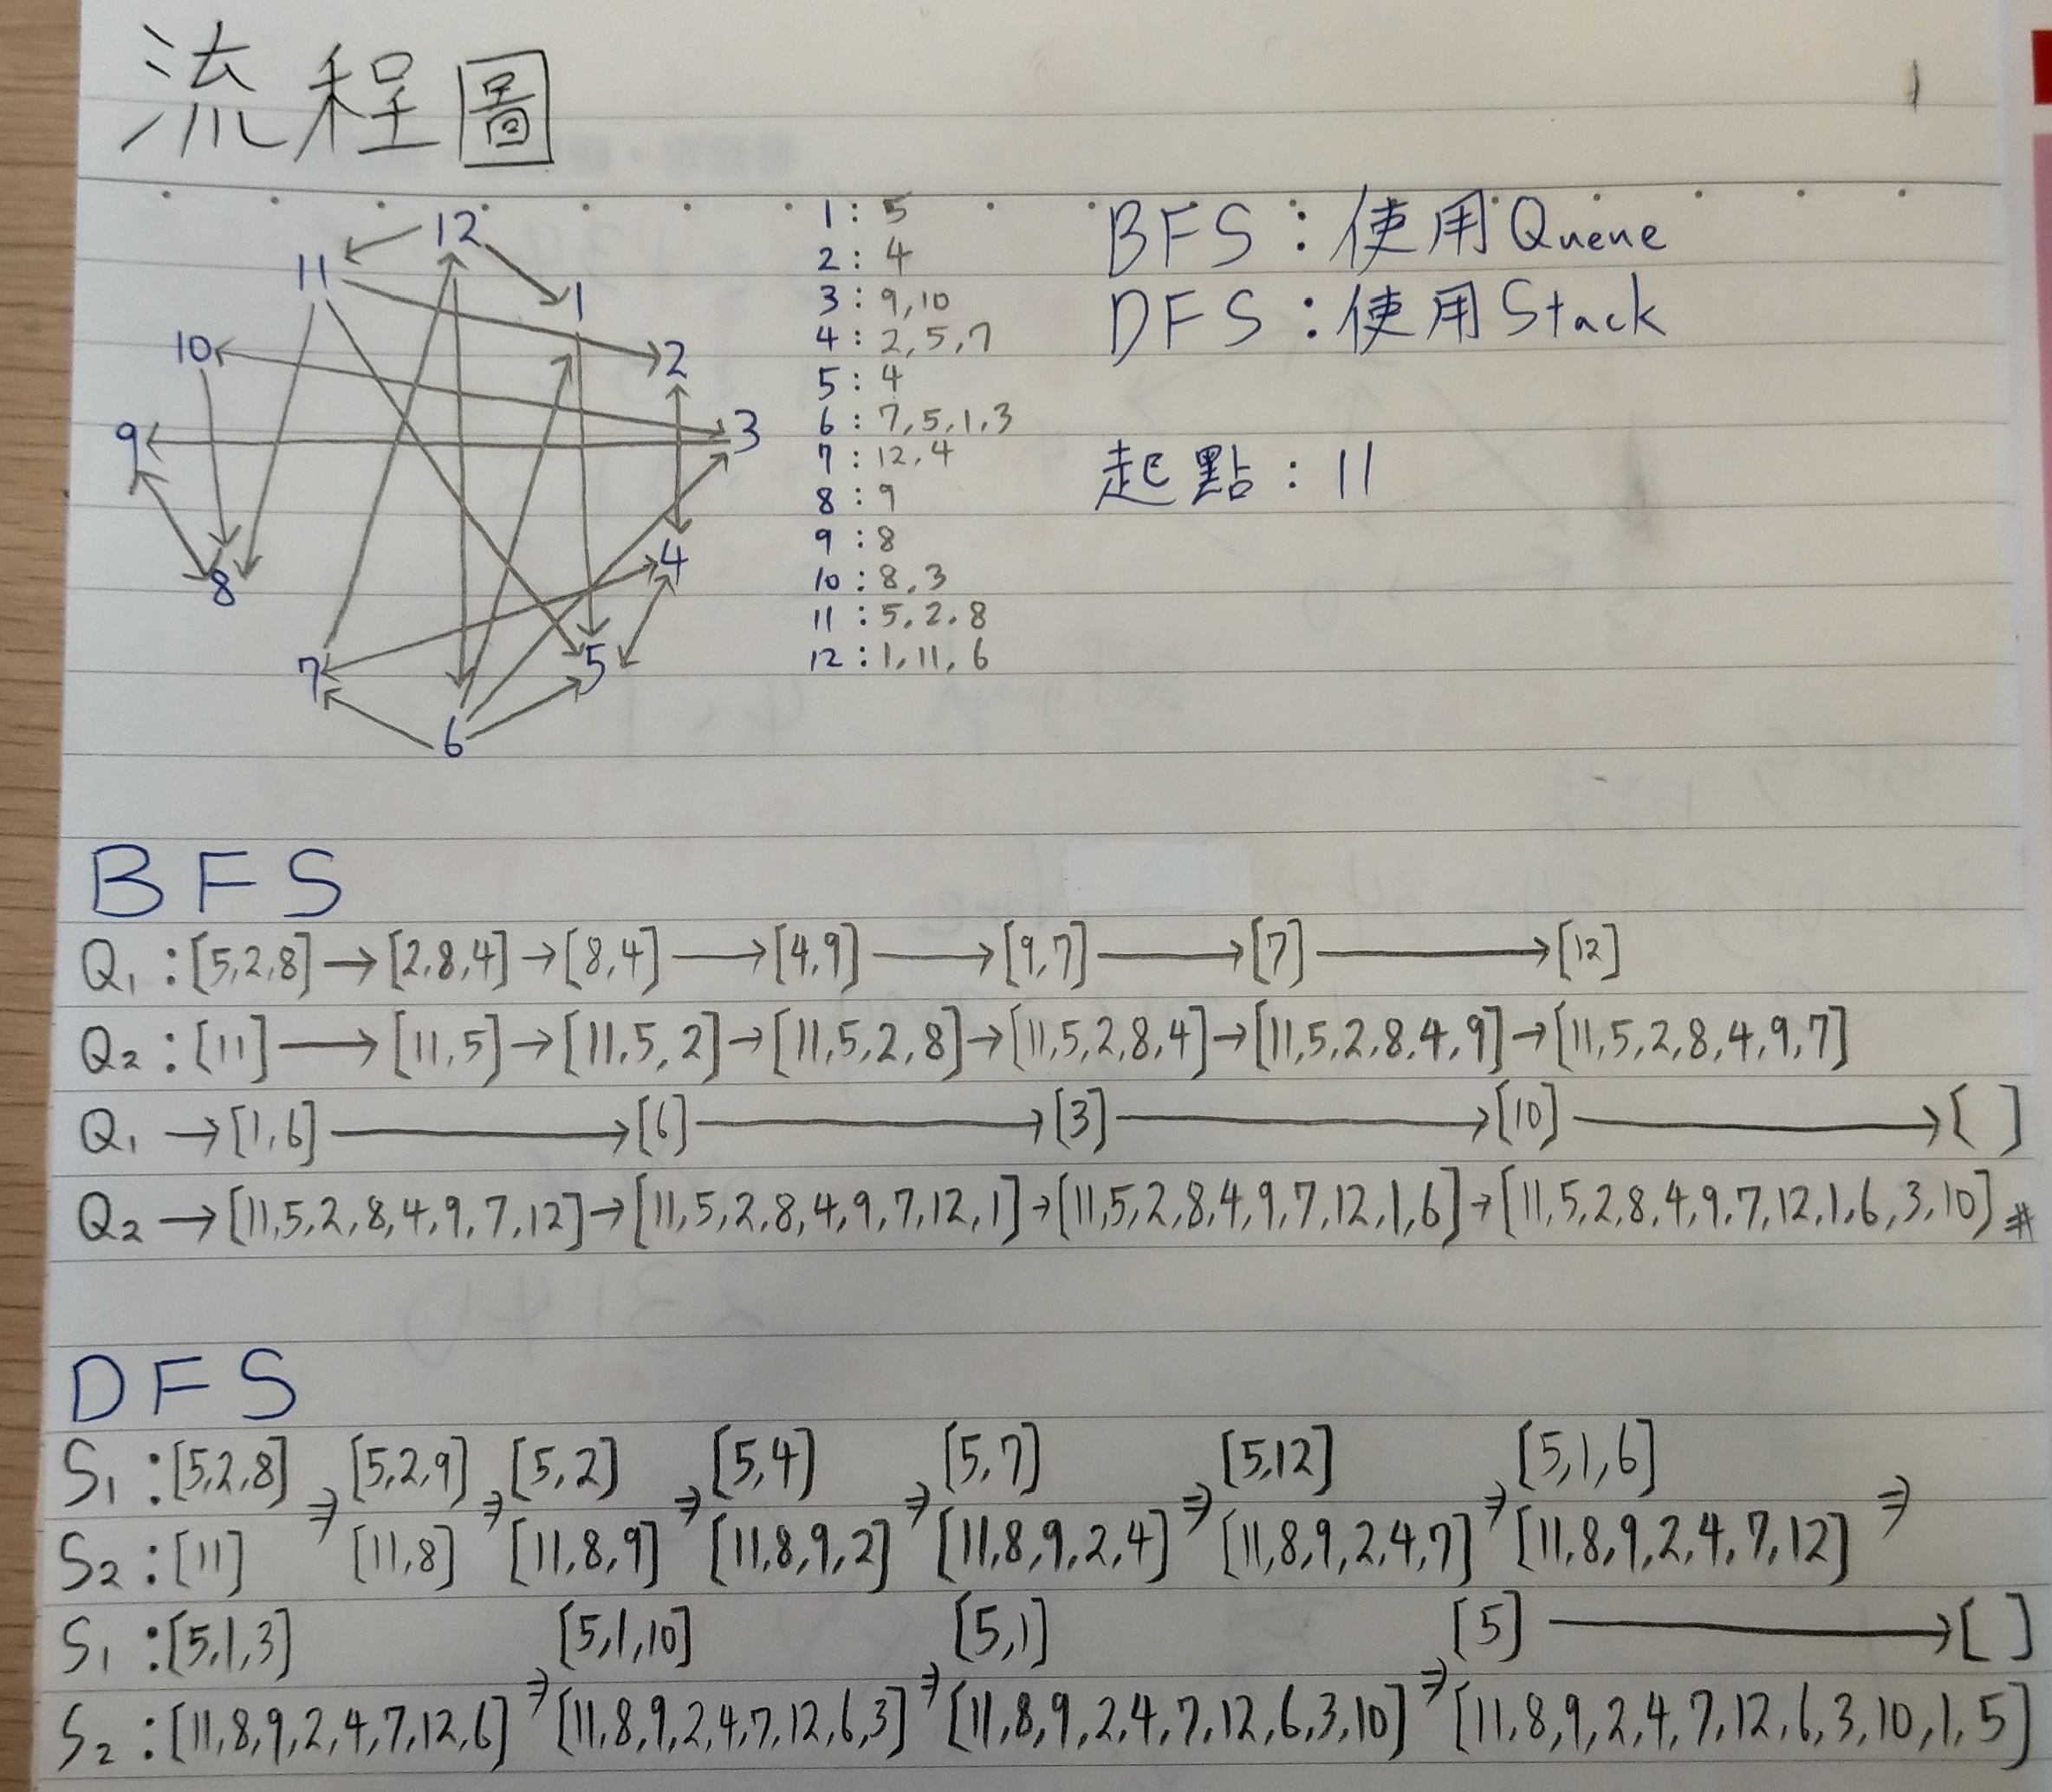 流程圖
1
12
11
1
10
2
9
3
8
4
7
5
6
1 : 5
2 : 4
3 : 9,10
4 : 2,5,7
5 : 4
6 : 7,5,1,3
7 : 12,4
8 : 9
9 : 8
10 : 8,3
11 : 5,2,8
12 : 1,11,6
BFS : 使用Queue
DFS : 使用Stack
起點 : 11
BFS
Q1 : [5,2,8] → [2,8,4] → [8,4] → [4,9] → [9,7] → [7] → [12]
Q2 : [11] → [11,5] → [11,5,2] → [11,5,2,8] → [11,5,2,8,4] → [11,5,2,8,4,9] → [11,5,2,8,4,9,7]
Q1 → [1,6] → [6] → [3] → [10] → [ ]
Q2 → [11,5,2,8,4,9,7,12] → [11,5,2,8,4,9,7,12,1] → [11,5,2,8,4,9,7,12,1,6] → [11,5,2,8,4,9,7,12,1,6,3,10] #
DFS
S1 : [5,2,8] ⇒ [5,2,9] ⇒ [5,2] ⇒ [5,4] ⇒ [5,7] ⇒ [5,12] ⇒ [5,1,6] ⇒
S2 : [11] [11,8] [11,8,9] [11,8,9,2] [11,8,9,2,4] [11,8,9,2,4,7] [11,8,9,2,4,7,12]
S1 : [5,1,3] ⇒ [5,1,10] ⇒ [5,1] ⇒ [5] → [ ]
S2 : [11,8,9,2,4,7,12,6] [11,8,9,2,4,7,12,6,3] [11,8,9,2,4,7,12,6,3,10] [11,8,9,2,4,7,12,6,3,10,1,5]